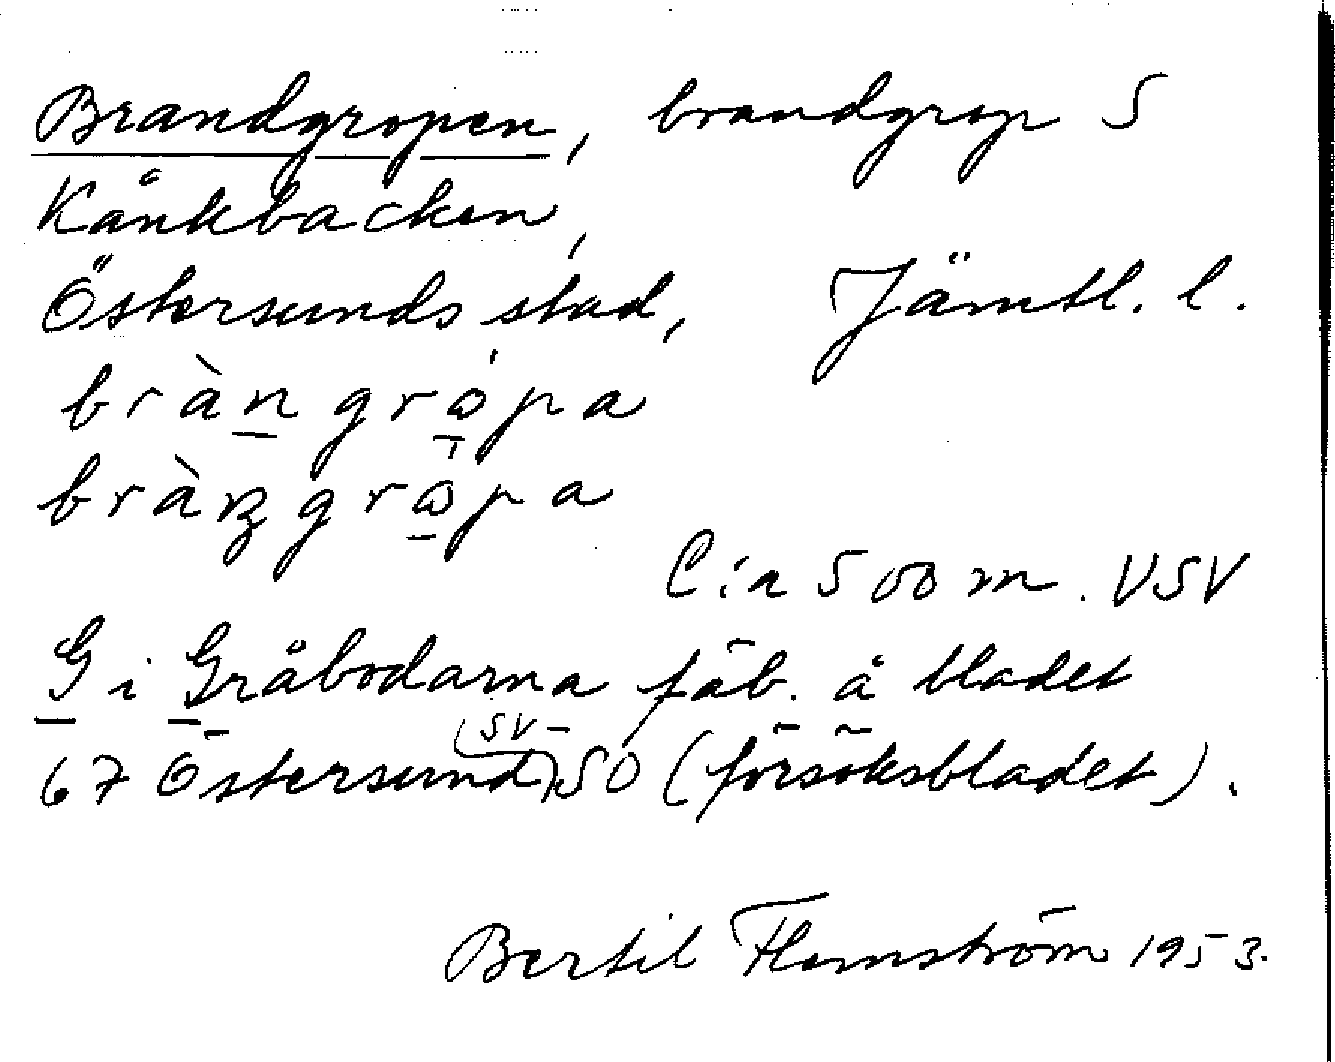 Brandgropen, brandgrop S
Kånkbacken,
Östersunds stad, Jämtl. l.
bràn grópa
bràŋ grópa
C:a 500 m. VSV
G i Gråbodarna fäb. å bladet
67 Östersund (SV) SO (försöksbladet).
Bertil Flemström 1953.